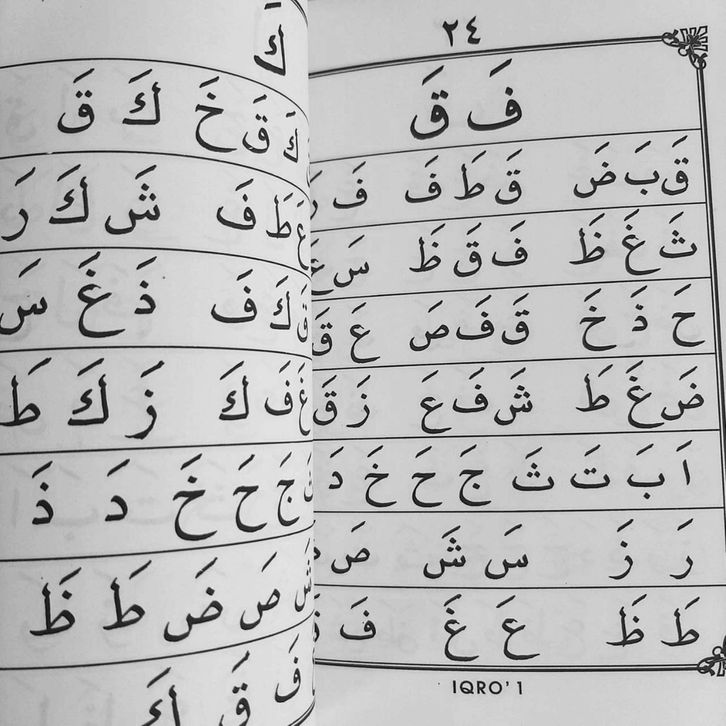 ٢٤
فَ قَ
قَ بَ ضَ قَ طَ فَ فَ
ثَ غَ ظَ فَ قَ ظَ سَ
حَ ذَ خَ قَ فَ صَ عَ قَ
ضَ غَ طَ شَ فَ عَ زَ قَ
اَ بَ تَ ثَ جَ حَ خَ دَ
رَ زَ سَ شَ صَ
طَ ظَ عَ غَ فَ
IQRO' 1
كَ
كَ قَ خَ كَ قَ
طَ فَ شَ كَ رَ
كَ فَ ذَ غَ سَ
فَ كَ زَ كَ طَ
جَ حَ خَ دَ ذَ
شَ صَ ضَ طَ ظَ
فَ قَ كَ